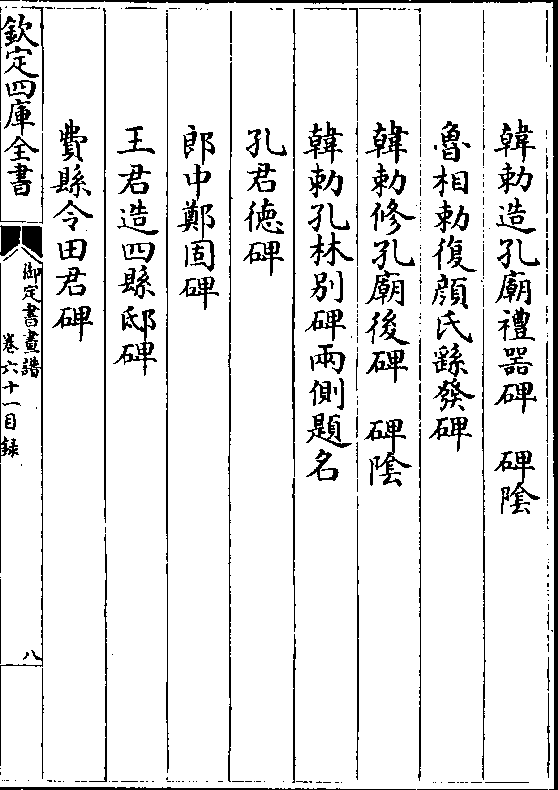 韓勅造孔廟禮器碑　碑陰
魯相勅復顔氏繇發碑
韓勅修孔廟後碑　碑陰
韓勅孔林別碑兩側題名
孔君德碑
郎中鄭固碑
王君造四縣邸碑
費縣令田君碑
欽定四庫全書
御定書畫譜
卷六十一目録
八